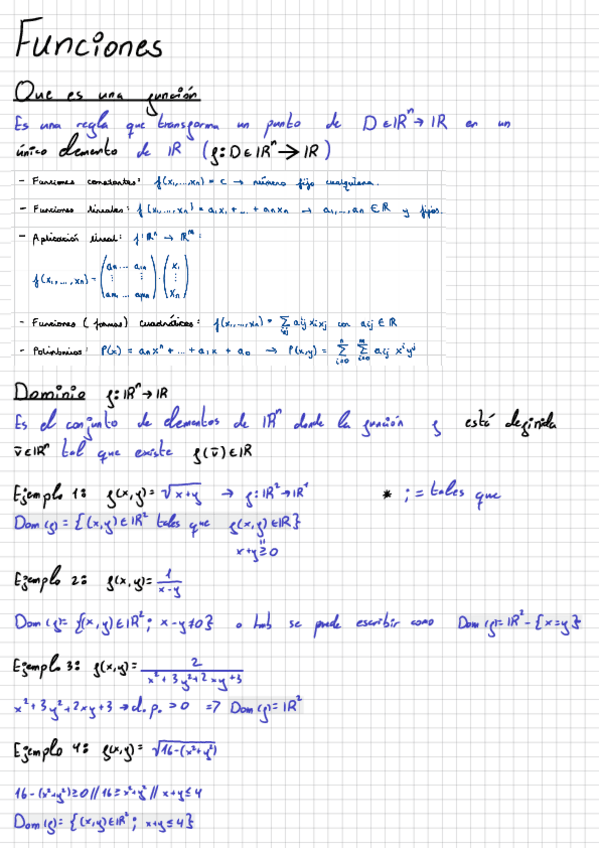 Funciones
Que es una función
Es una regla que transforma un punto de D ∈ ℝⁿ → ℝ en un
único elemento de ℝ (f: D ∈ ℝⁿ → ℝ)
- Funciones constantes: f(x₁,...,xₙ) = c → número fijo cualquiera.
- Funciones lineales: f(x₁,...,xₙ) = a₁x₁ + ... + aₙxₙ → a₁,...,aₙ ∈ ℝ y fijos.
- Aplicación lineal: f: ℝⁿ → ℝᵐ:
f(x₁,...,xₙ) = (a₁₁ ... a₁ₙ ⋮ ⋮ aₘ₁ ... aₘₙ) · (x₁ ⋮ xₙ)
- Funciones (formas) cuadráticas: f(x₁,...,xₙ) = Σᵢⱼ aᵢⱼ xᵢxⱼ con aᵢⱼ ∈ ℝ
- Polinómios: P(x) = aₙxⁿ + ... + a₁x + a₀ → P(x,y) = Σ Σ aᵢⱼ xⁱyʲ
Dominio f: ℝⁿ → ℝ
Es el conjunto de elementos de ℝⁿ donde la función f está definida
v̄ ∈ ℝⁿ tal que existe f(v̄) ∈ ℝ
Ejemplo 1: f(x,y) = √x+y → f: ℝ² → ℝ¹ * ; = tales que
Dom(f) = {(x,y) ∈ ℝ² tales que f(x,y) ∈ ℝ}
x+y ≥ 0
Ejemplo 2: f(x,y) = 1/(x-y)
Dom(f) = {(x,y) ∈ ℝ²; x-y ≠ 0} o tmb se puede escribir como Dom(f) = ℝ² - {x=y}
Ejemplo 3: f(x,y) = 2/(x²+3y²+2xy+3)
x²+3y²+2xy+3 → d.p. > 0 => Dom(f) = ℝ²
Ejemplo 4: f(x,y) = √16-(x²+y²)
16-(x²+y²) ≥ 0 // 16 ≥ x²+y² // x+y ≤ 4
Dom(f) = {(x,y) ∈ ℝ²; x+y ≤ 4}